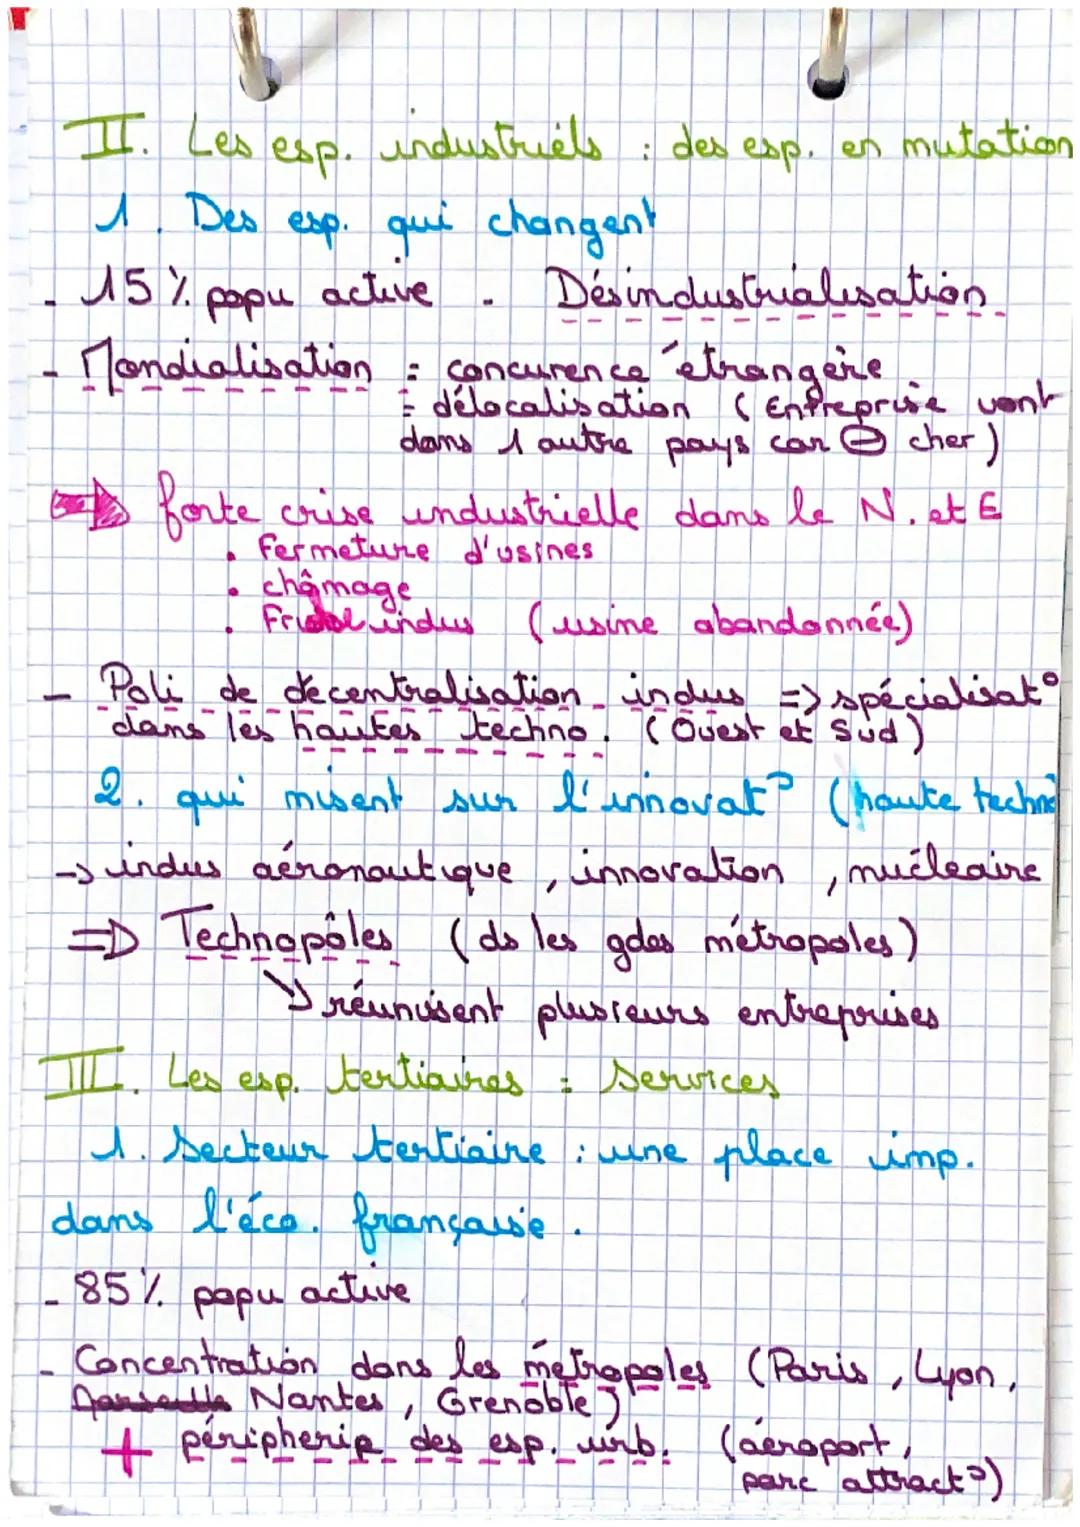 II. Les esp. industriels : des esp. en mutation
1. Des esp. qui changent
- 15% popu active - Désindustrialisation
- Mondialisation = concurence étrangère
= délocalisation (Entreprise vont
dans 1 autre pays car ⊖ cher)
⇨ forte crise industrielle dans le N. et E
• Fermeture d'usines
• chômage
• indus (usine abandonnée)
- Poli de décentralisation indus => spécialisat°
dans les hautes techno. (Ouest et Sud)
2. qui misent sur l'innovat° (haute techno
-> indus aéronautique, innovation, nucléaire
=> Technopôles (ds les gdes métropoles)
↘ réunisent plusieurs entreprises
III. Les esp. tertiaires = Services
1. Secteur tertiaire : une place imp.
dans l'éco. française.
- 85% popu active
- Concentration dans les métropoles (Paris, Lyon,
Nantes, Grenoble)
+ péripherie des esp. urb. (aéroport,
parc attract°)